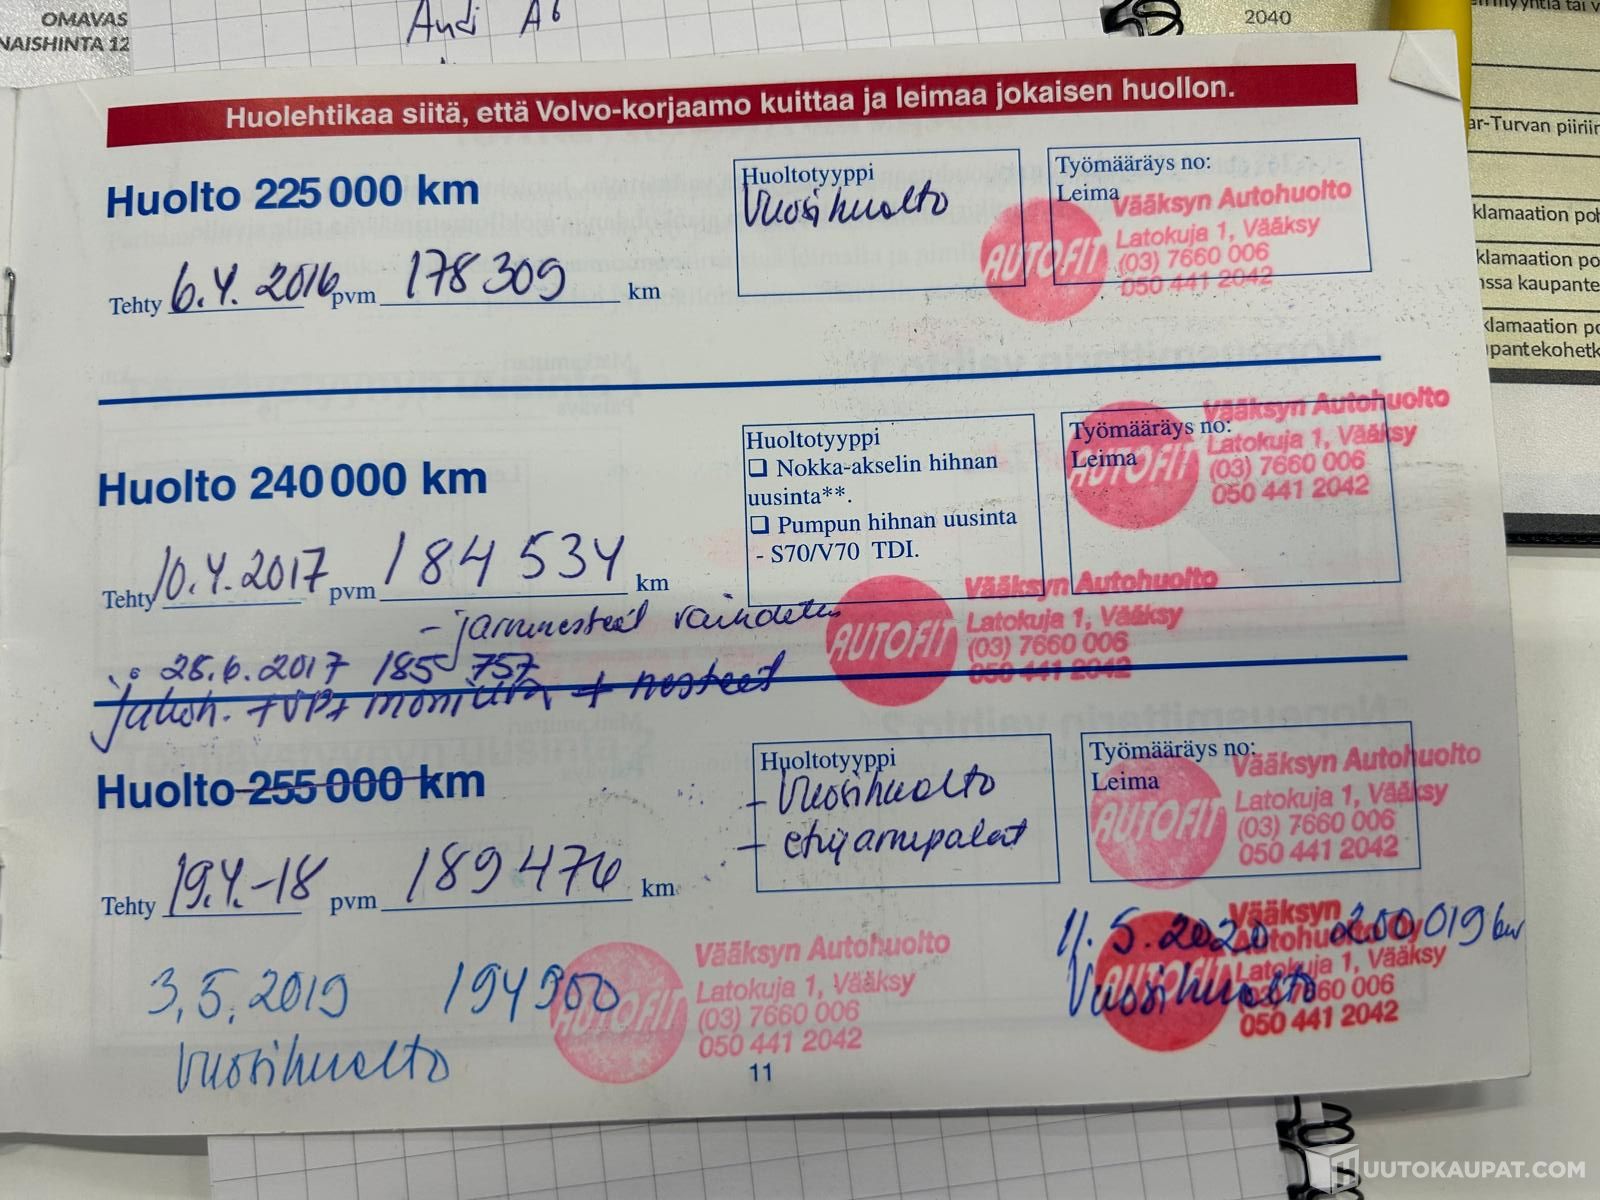 OMAVAS
NAISHINTA 12
Audi A6
2040
Huolehtikaa siitä, että Volvo-korjaamo kuittaa ja leimaa jokaisen huollon.
Huolto 225 000 km
Tehty 6.4.2016 pvm 178 309 km
Huoltotyyppi
Vuosihuolto
Työmääräys no:
Leima
AUTOFIT
Vääksyn Autohuolto
Latokuja 1, Vääksy
(03) 7660 006
050 441 2042
Huolto 240 000 km
Tehty 10.4.2017 pvm 184 534 km
- jarrunesteet vaihdettu
28.6.2017 185 757
Jakoh. + VP + + nesteet
Huoltotyyppi
❑ Nokka-akselin hihnan
uusinta**.
❑ Pumpun hihnan uusinta
- S70/V70 TDI.
Työmääräys no:
Leima
AUTOFIT
Vääksyn Autohuolto
Latokuja 1, Vääksy
(03) 7660 006
050 441 2042
AUTOFIT
Vääksyn Autohuolto
Latokuja 1, Vääksy
(03) 7660 006
050 441 2042
Huolto 255 000 km
Tehty 19.4.-18 pvm 189 476 km
Huoltotyyppi
- Vuosihuolto
- etujarrupalat
Työmääräys no:
Leima
AUTOFIT
Vääksyn Autohuolto
Latokuja 1, Vääksy
(03) 7660 006
050 441 2042
3.5.2019 194900
Vuosihuolto
AUTOFIT
Vääksyn Autohuolto
Latokuja 1, Vääksy
(03) 7660 006
050 441 2042
11.5.2020 200 019 km
Vuosihuolto
AUTOFIT
Vääksyn
Autohuolto Oy
Latokuja 1, Vääksy
(03) 7660 006
050 441 2042
11
ar-Turvan piirin
klamaation poh
klamaation po
ssa kaupante
klamaation po
pantekohetk
HUUTOKAUPAT.COM